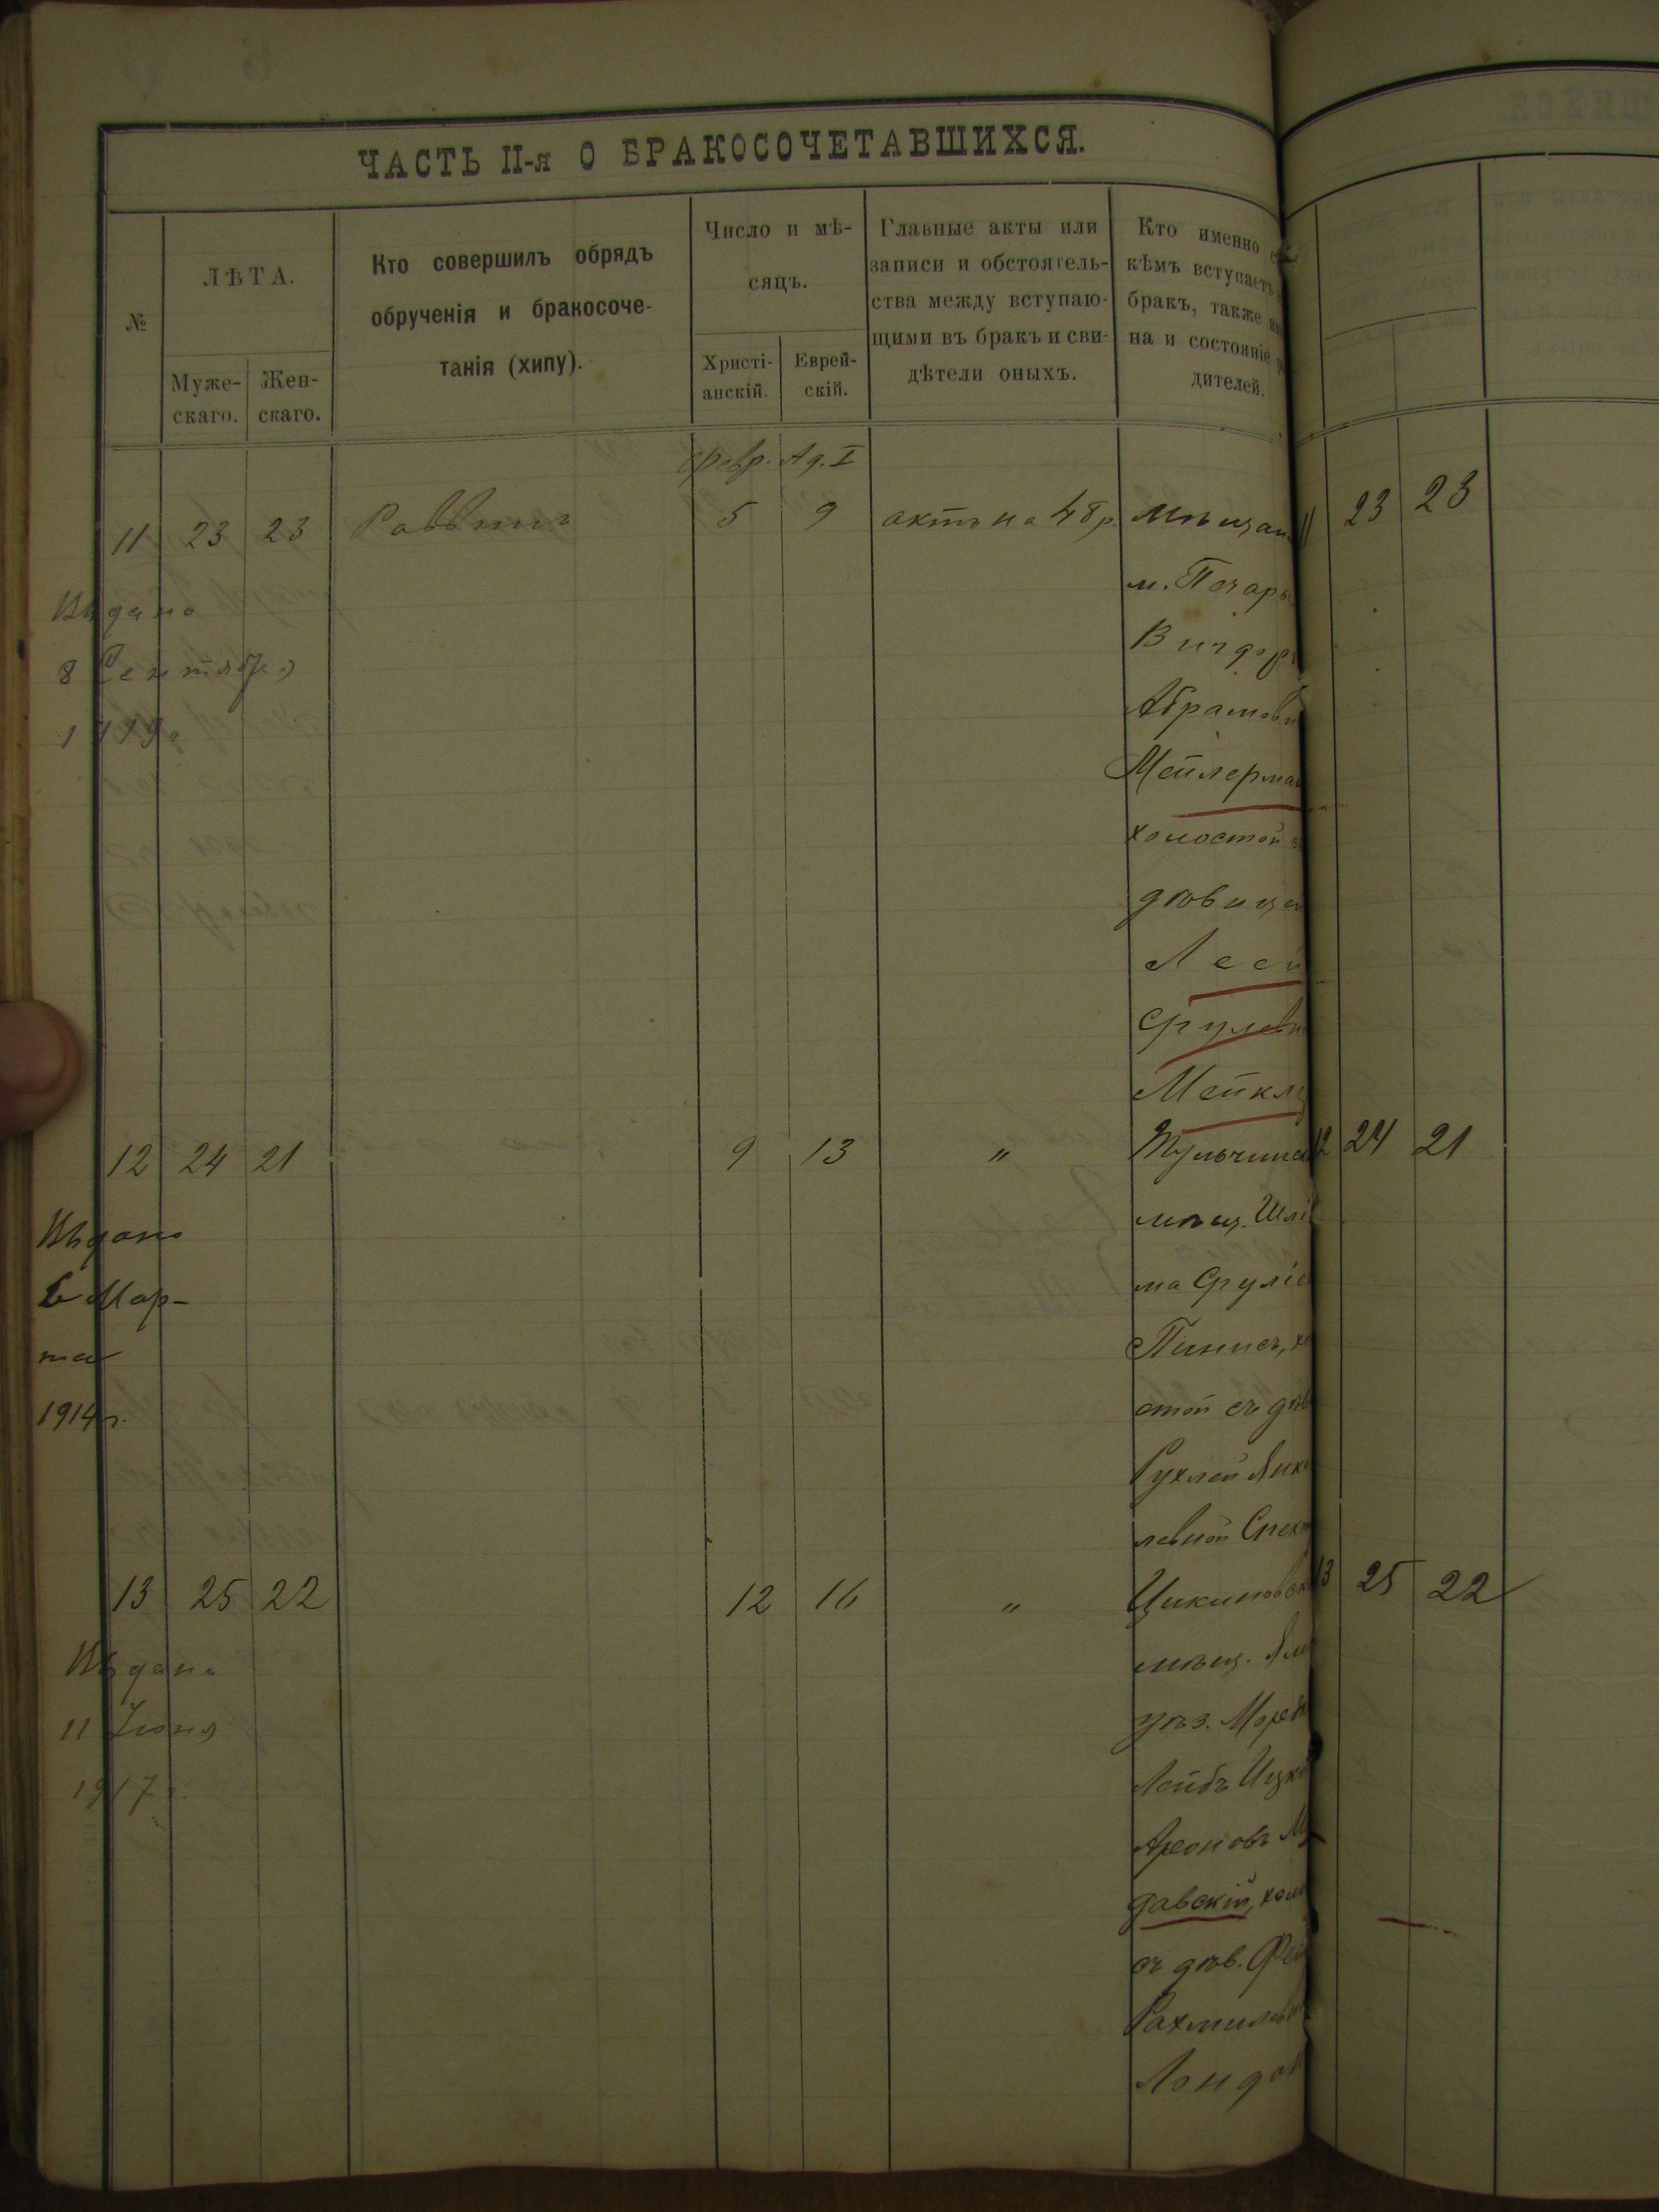 ЧАСТЬ II-я О БРАКОСОЧЕТАВШИХСЯ.
№
ЛѢТА.
Муже-
скаго.
Жен-
скаго.
Кто совершилъ обрядъ
обрученія и бракосоче-
танія (хипу).
Число и мѣ-
сяцъ.
Христі-
анскій.
Еврей-
скій.
Главные акты или
записи и обстоятель-
ства между вступаю-
щими въ бракъ и сви-
дѣтели оныхъ.
Кто именно
кѣмъ вступаетъ
бракъ, также
на и состояніе
дителей.
Февр. Ад. I
11 23 23 Раввинъ 5 9 актъ на 48 р. Мѣщан
м. Печары
Вигдоръ
Абрамов
Мейлерман
холостой
дѣвицей
Леей
Срулевн
Мейкл
Выдано
8 Сентября
1919
12 24 21 9 13 " Тульчинс
мѣщ. Шлі
ма Сруліо
Пинисъ, хо
стой съ дѣв
Рухлей Янке
левной Спек
Выдано
6 Мар-
та
1914 г.
13 25 22 12 16 " Цикиновск
мѣщ. Ям
уѣз. Морд
Лейбъ Ицко
Ароновъ М
давскій, хол
съ дѣв. Фей
Рахмилев
Лондо
Выдано
11 Іюня
1917 г.
11 23 23
12 24 21
13 25 22